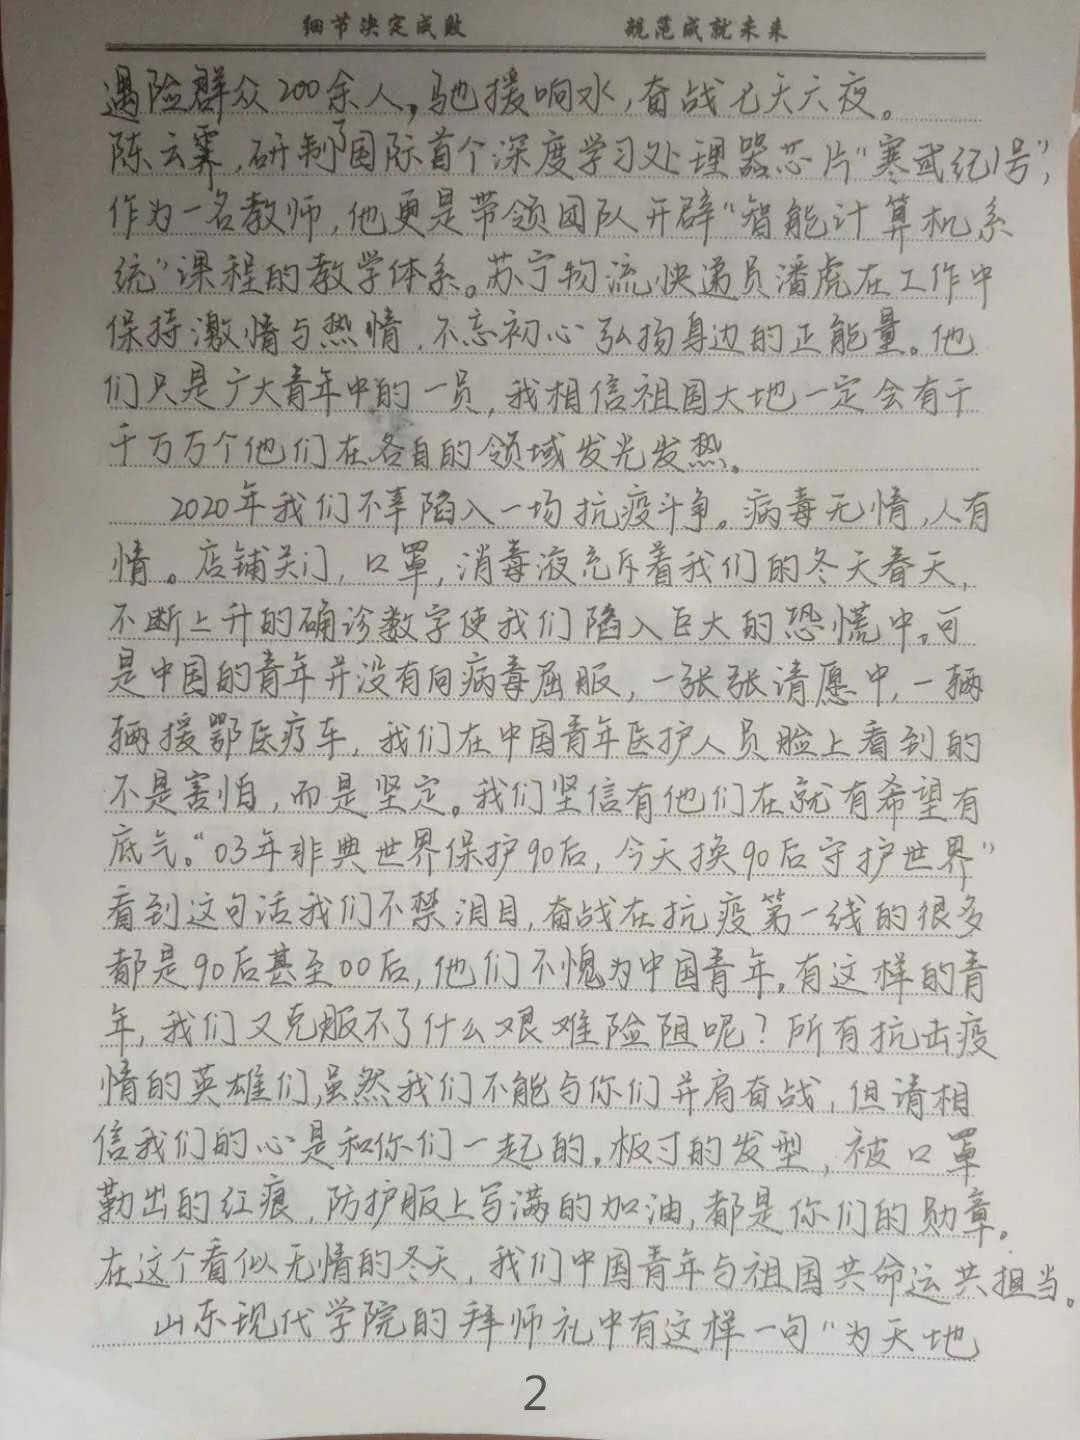 细节决定成败 规范成就未来
遇险群众200余人，驰援响水，奋战七天六夜。
陈云霁，研制国际首个深度学习处理器芯片“寒武纪1号”，
作为一名教师，他更是带领团队开辟“智能计算机系
统”课程的教学体系。苏宁物流快递员潘虎在工作中
保持激情与热情，不忘初心弘扬身边的正能量。他
们只是广大青年中的一员，我相信祖国大地一定会有千
千万万个他们在各自的领域发光发热。
2020年我们不幸陷入一场抗疫斗争。病毒无情，人有
情。店铺关门，口罩，消毒液充斥着我们的冬天春天，
不断上升的确诊数字使我们陷入巨大的恐慌中。可
是中国的青年并没有向病毒屈服，一张张请愿中，一辆
辆援鄂医疗车，我们在中国青年医护人员脸上看到的
不是害怕，而是坚定。我们坚信有他们在就有希望有
底气。“03年非典世界保护90后，今天换90后守护世界”
看到这句话我们不禁泪目，奋战在抗疫第一线的很多
都是90后甚至00后，他们不愧为中国青年。有这样的青
年，我们又克服不了什么艰难险阻呢？所有抗击疫
情的英雄们，虽然我们不能与你们并肩奋战，但请相
信我们的心是和你们一起的。板寸的发型，被口罩
勒出的红痕，防护服上写满的加油，都是你们的勋章。
在这个看似无情的冬天，我们中国青年与祖国共命运共担当。
山东现代学院的拜师礼中有这样一句“为天地
2